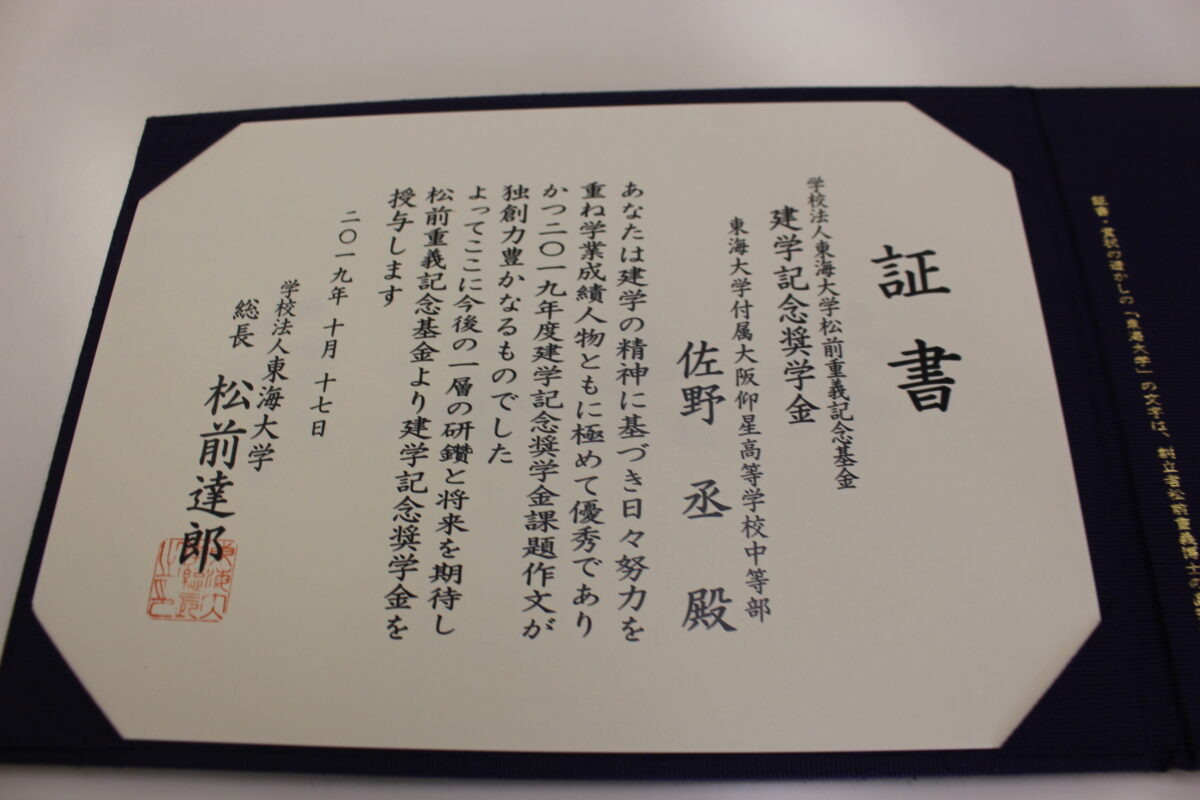 証書
学校法人東海大学松前重義記念基金
建学記念奨学金
東海大学付属大阪仰星高等学校中等部
佐野 丞 殿
あなたは建学の精神に基づき日々努力を
重ね学業成績人物ともに極めて優秀であり
かつ二〇一九年度建学記念奨学金課題作文が
独創力豊かなるものでした
よってここに今後の一層の研鑽と将来を期待し
松前重義記念基金より建学記念奨学金を
授与します
二〇一九年 十月 十七日
学校法人東海大学
総長 松前達郎
証書・賞状の透かしの「東海大学」の文字は、創立者松前重義博士の